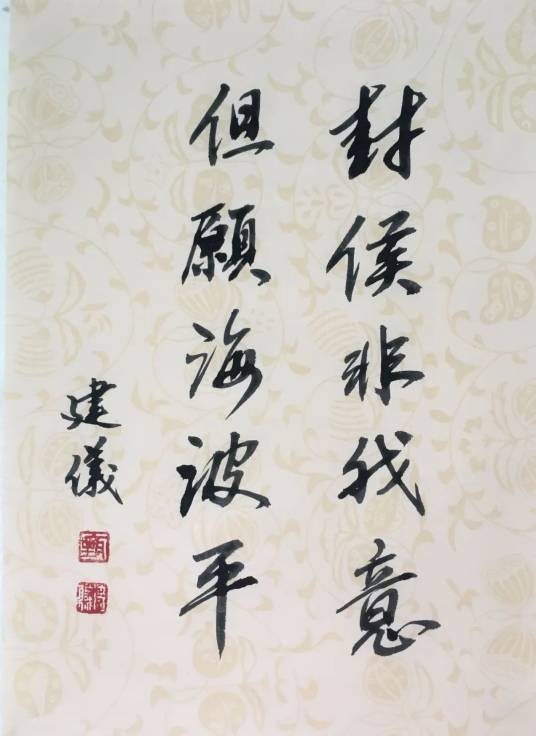 封侯非我意
但願海波平
建儀